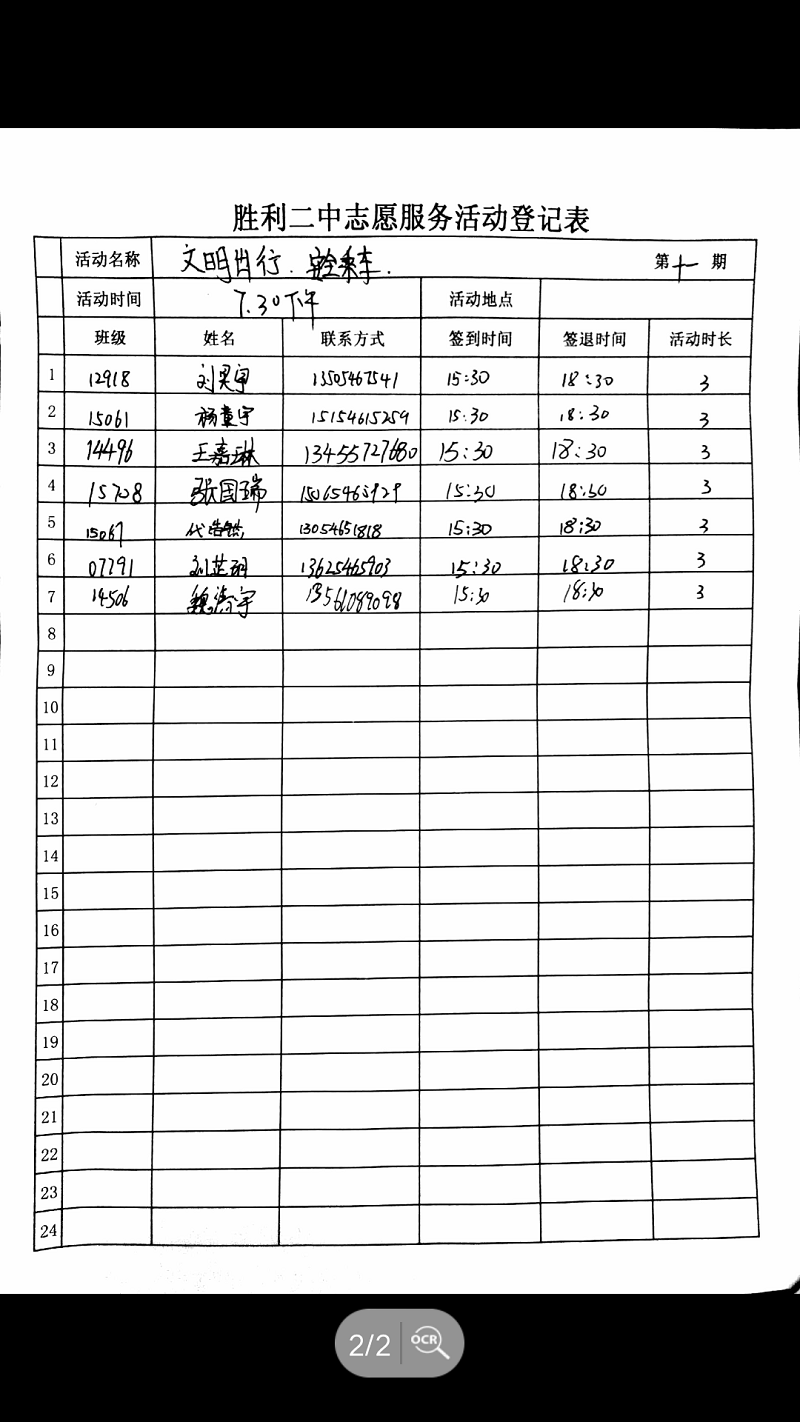 胜利二中志愿服务活动登记表
活动名称 文明出行. 第十一期
活动时间 7.30下午 活动地点
班级 姓名 联系方式 签到时间 签退时间 活动时长
1 12918 刘昊宇 13505467541 15:30 18:30 3
2 15061 杨童宇 15154615259 15:30 18:30 3
3 14496 王嘉琳 13455727680 15:30 18:30 3
4 15708 张国瑞 15065465929 15:30 18:30 3
5 15067 代浩然 13054651818 15:30 18:30 3
6 07791 刘芷玥 13625465903 15:30 18:30 3
7 14506 13561089098 15:30 18:30 3
8
9
10
11
12
13
14
15
16
17
18
19
20
21
22
23
24
2/2 OCR